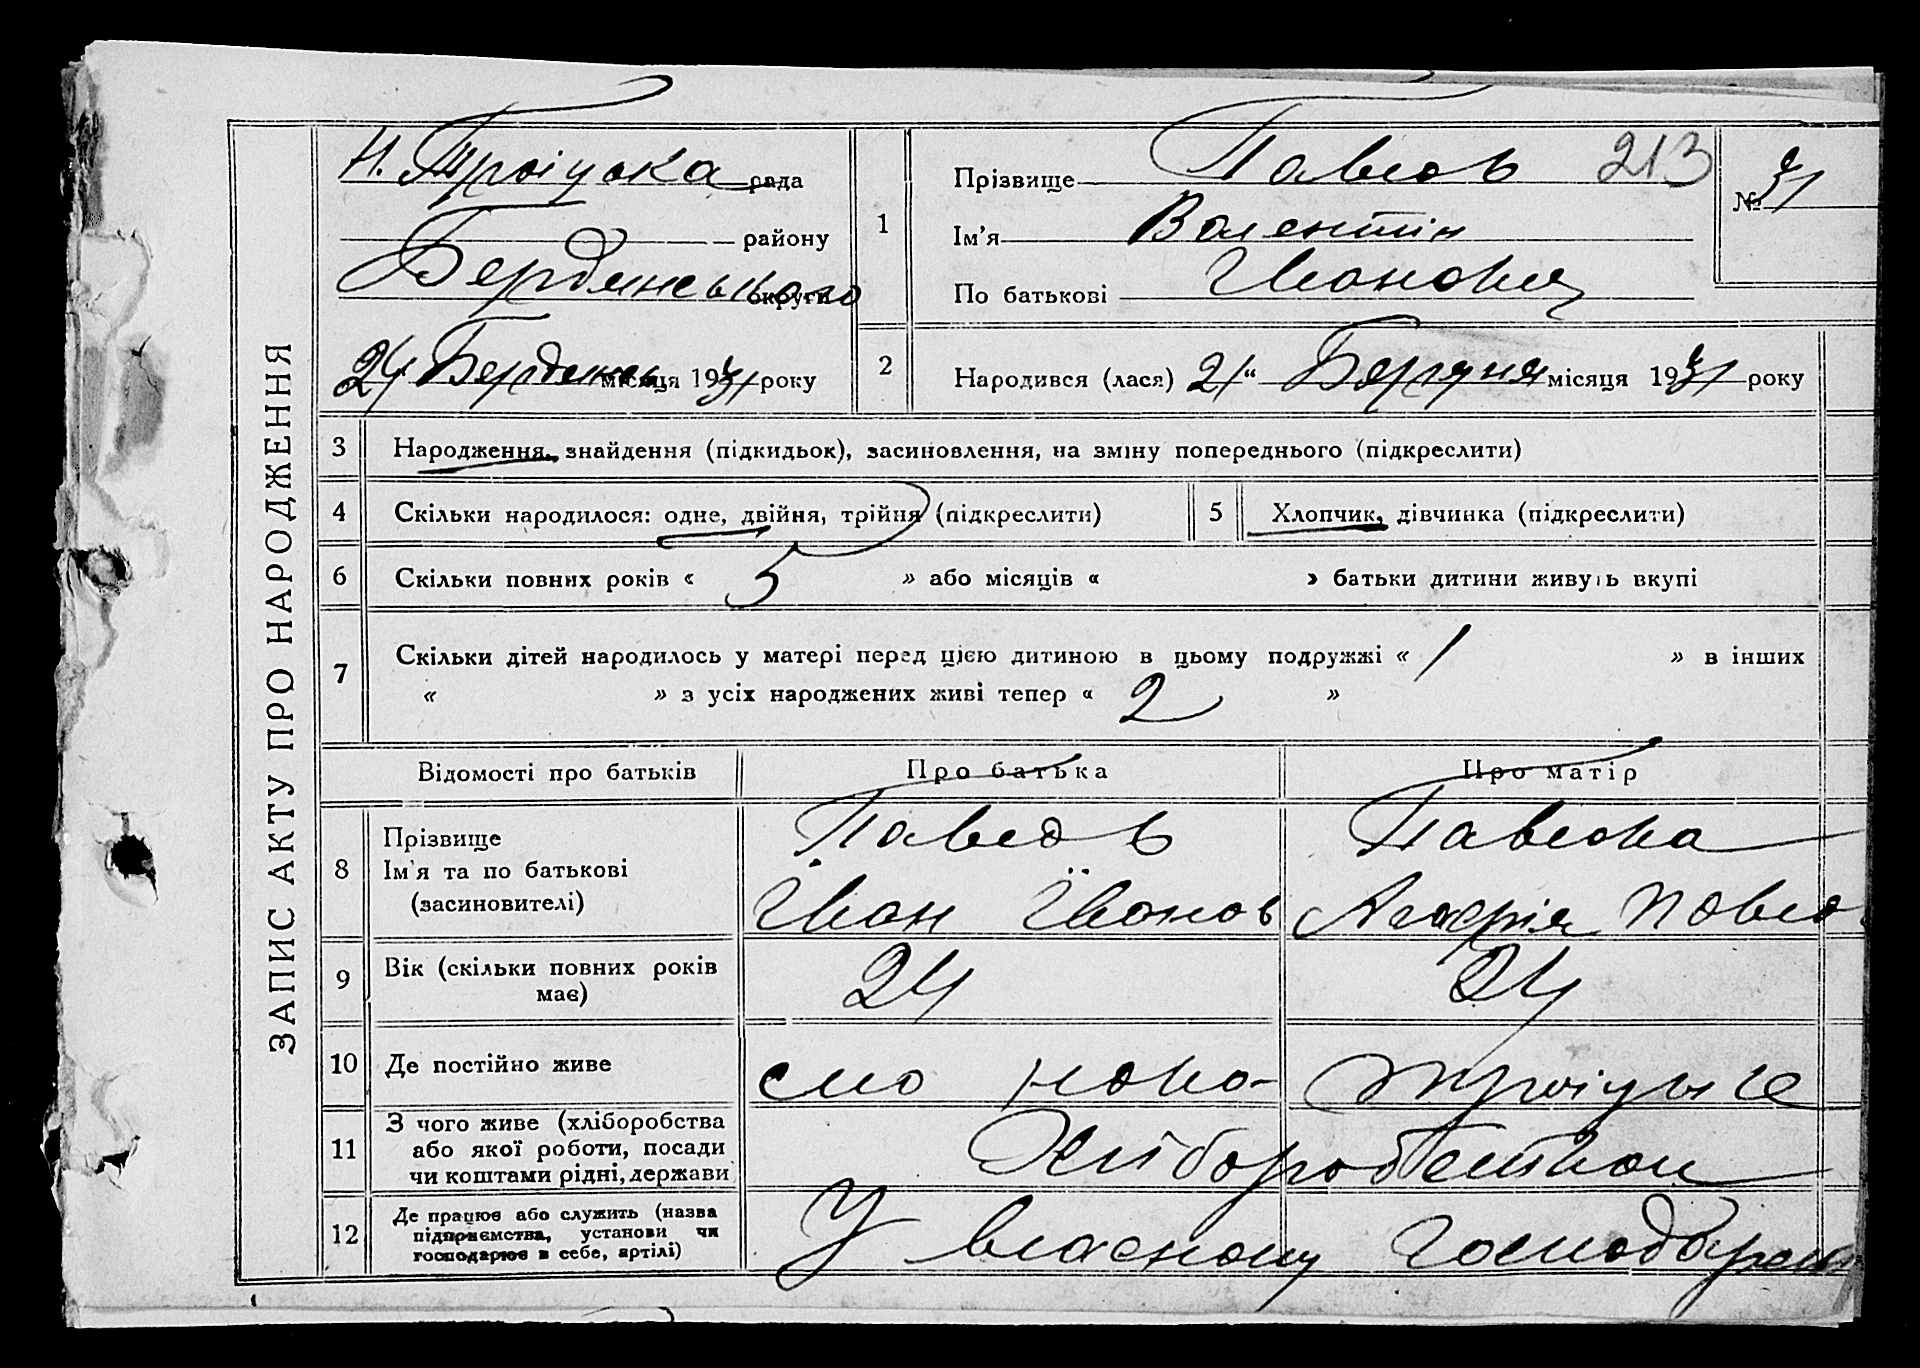 ЗАПИС АКТУ ПРО НАРОДЖЕННЯ
Н. Троіцька рада
району
Бердянського округи
24 місяця 1931 року
1
Прізвище Павлов 213
Ім'я Валентін
По батькові Іванович
№ 31
2
Народився (лася) 21 " Березня місяця 1931 року
3 Народження, знайдення (підкидьок), засиновлення, на зміну попереднього (підкреслити)
4 Скільки народилося: одне, двійня, трійня (підкреслити)
5 Хлопчик, дівчинка (підкреслити)
6 Скільки повних років « 5 » або місяців « » батьки дитини живуть вкупі
7 Скільки дітей народилось у матері перед цією дитиною в цьому подружжі « 1 » в інших
« » з усіх народжених живі тепер « 2 »
Відомості про батьків Про батька Про матір
8 Прізвище
Ім'я та по батькові
(засиновителі)
Павлов
Іван Іванов
Павлова
Павло
9 Вік (скільки повних років
має)
24 24
10 Де постійно живе село Ново- Троіцьке
11 З чого живе (хліборобства
або якої роботи, посади
чи коштами рідні, держави
Хліборобством
12 Де працює або служить (назва
підприємства, установи чи
господарює в себе, артілі)
У власному господарств